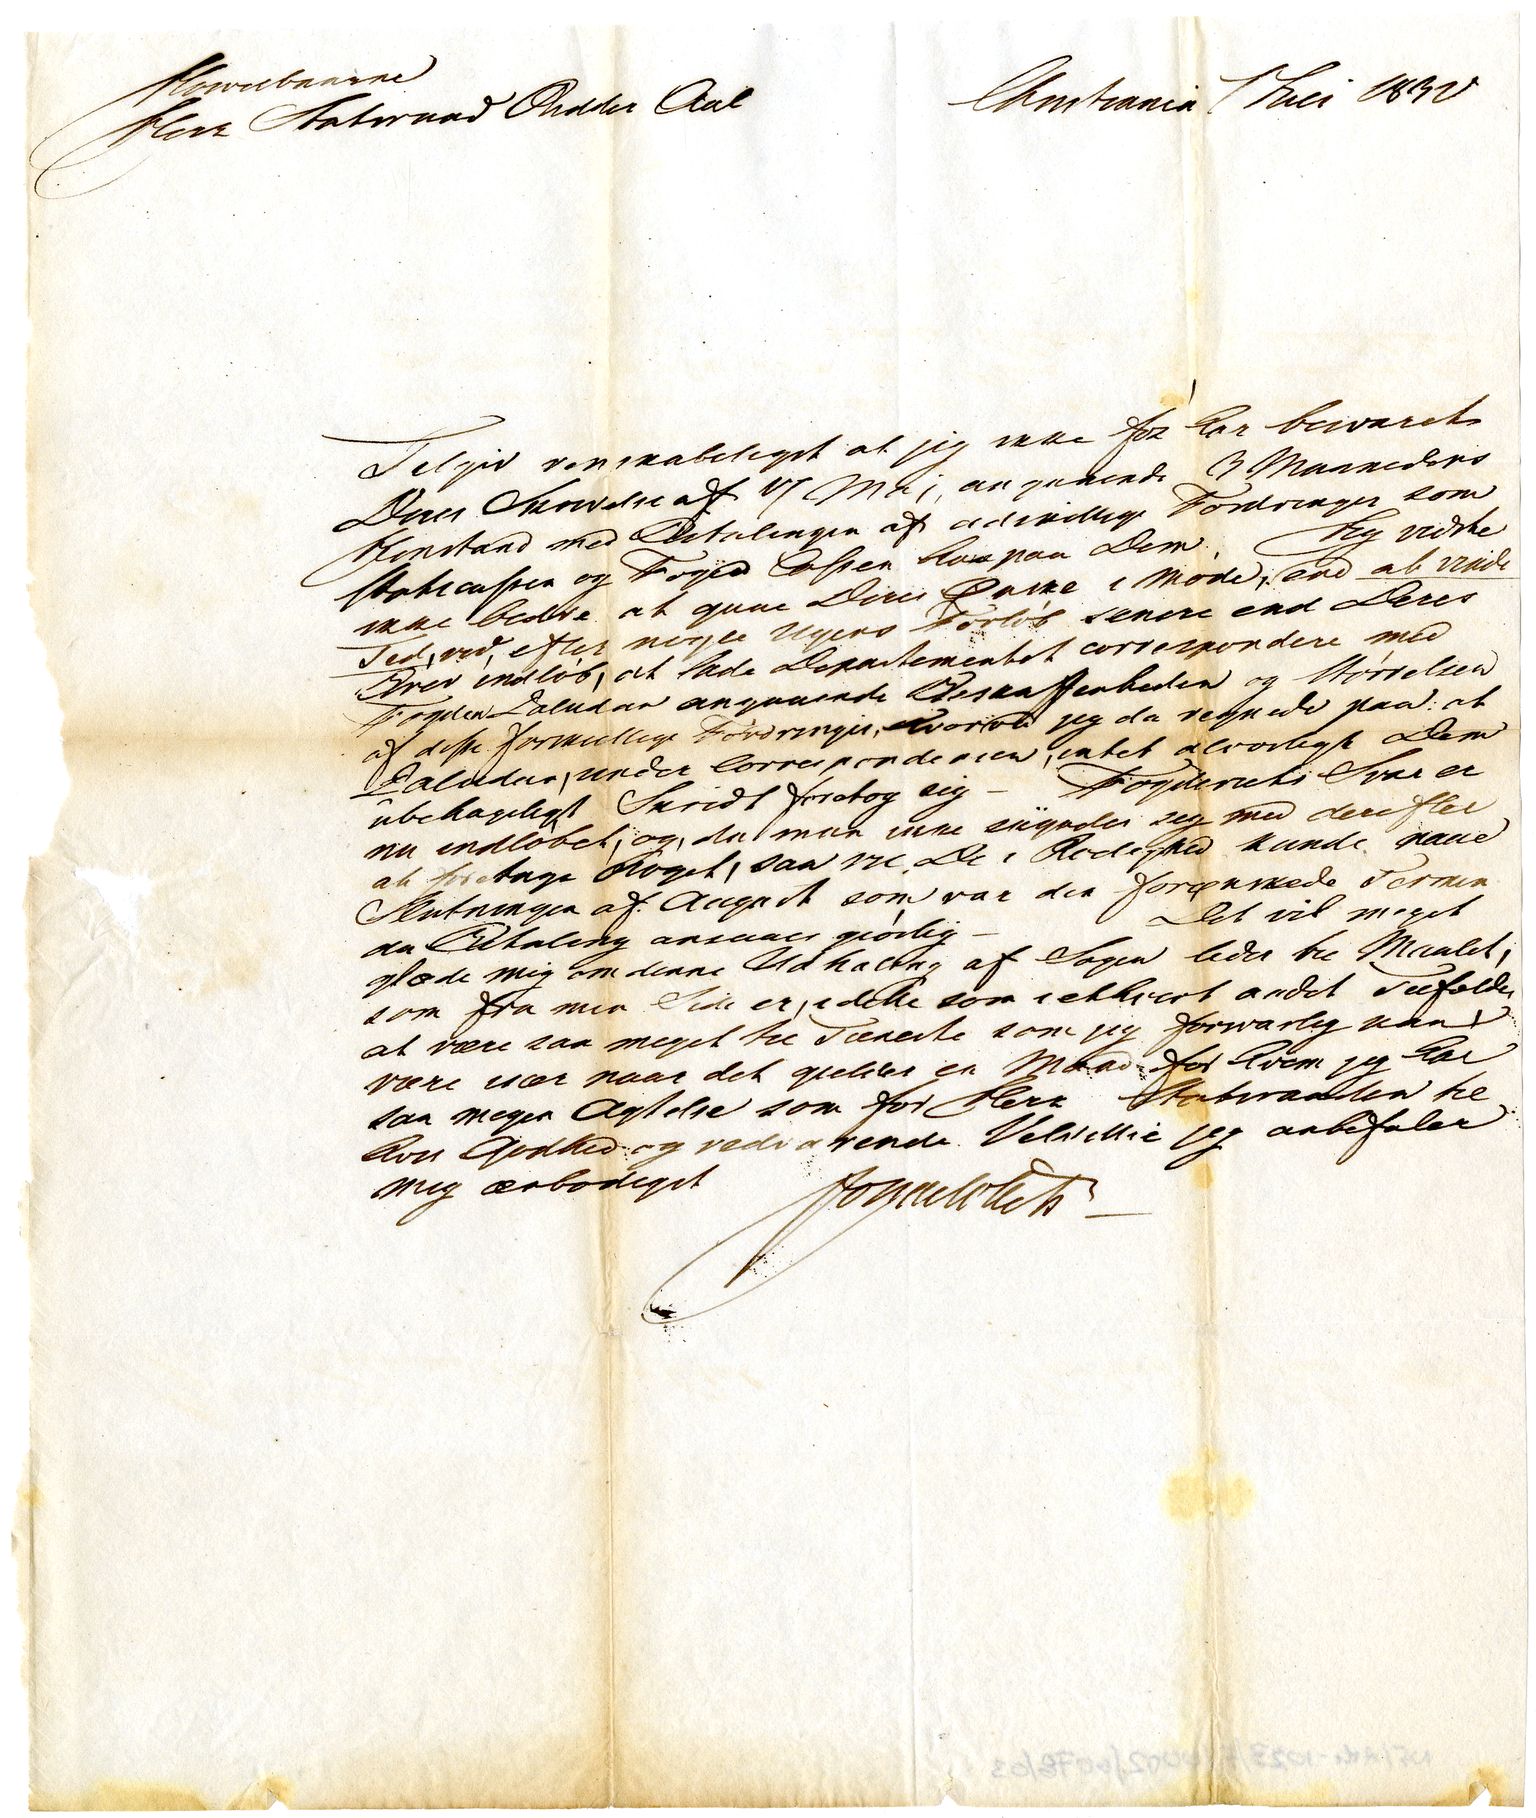 Høivelbaarne
Herr Statsraad Ridder Aal
Christiania 7 Juli 1832
Tilgiv venskabeligst at jeg ikke før har besvaret
Deres Skrivelse af 17 Mai, angaaende 3 Maaneders
Henstand med Betalingen af adskillige Fordringer som
Statscassen og Foged Cassen har paa Dem. Jeg vidste
ikke bedre at gaae Deres Ønske i Møde, end at vinde
Tid, ved, efter nogle Ugers Forløb senere end Deres
Brev indløb, at lade Departementet correspondere med
Fogden Paludan angaaende Beskaffenheden og Størrelsen
af disse forskiellige Fordringer, hvorved jeg da regnede paa at
Paludan, under Correspondencen, intet alvorligt Dem
ubehageligt Skridt foretog sig – Fogderiets Svar er
nu indløbet, og, da man ikke skynder sig med derefter
at foretage Noget, saa vil De i Rolighed kunde naae
Slutningen af August som var den forønskede Termin
da Betaling ansaaes giørlig – Det vil meget
glæde mig om denne Udhaling af Sagen leder til Maalet,
som fra min Side er, i dette som i ethvert andet Tilfælde,
at være saa meget til Tieneste som jeg forsvarlig kan
være især naar det gielder en Mand for hvem jeg har
saa megen Agtelse som for Herr Statsraaden til
hvis Godhed og vedvarende Velvillie jeg anbefaler
mig ærbødigst